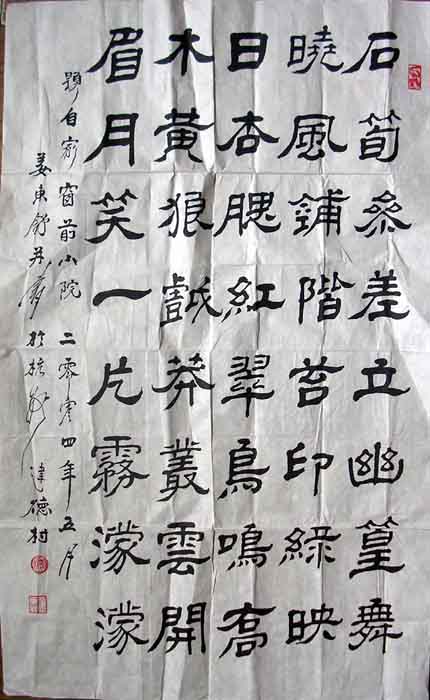 石筍參差立幽篁舞
曉風鋪階苔印綠映
日杏腮紅翠鳥鳴高
木黃狼戲莽叢雲開
眉月笑一片霧濛濛
題自家窗前小院二零零四年五月
姜東舒并書於杭 德村